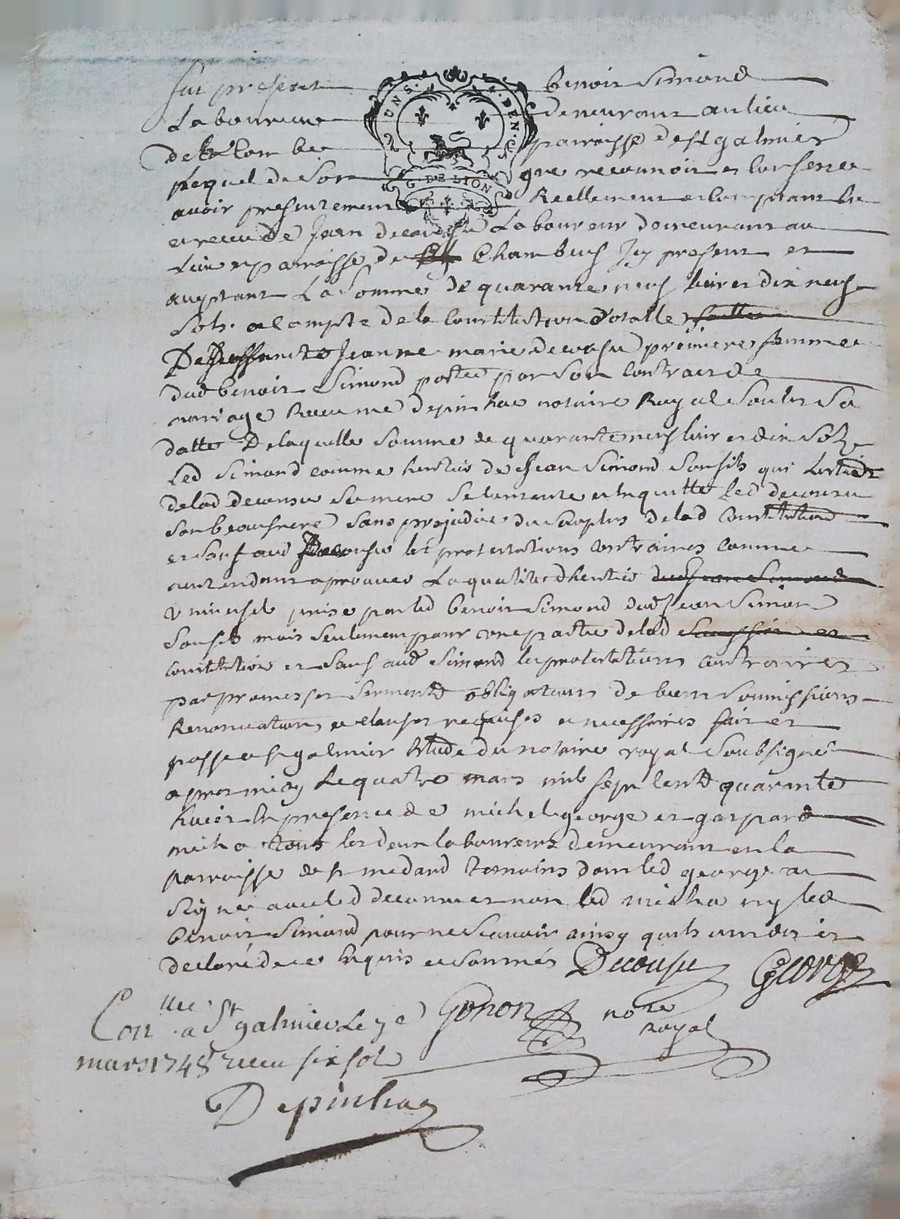 fut present benoit Simond
Laboureur demeurant au lieu
de parroisse de st galmier
lequel de son gre reconnoit et confesse
avoir presentement Reellement et comptant
et receu de Jean decousu Laboureur demeurant au
Lieu et parroisse de Chambeuf Icy present et
acceptant La Somme de quarante neuf livres dix neuf
Sols acompte de la Constitution dotalle
De deffuncte Jeanne marie decousu premiere femme
dud benoit Simond portée par Son Contract de
mariage Receu me depinhac notaire Royal Soubs Sa
datte De laquelle Somme de quarante neuf livres dix Sols
Led Simond comme heritier de Jean Simond Son fils qui
de lad decousu Sa mere Se contente et en quitte led decousu
Son beaufrere Sans prejudice du Surplus de lad Constitution
et Sauf aud decousu les protestations contraires comme
aprouver La qualité dheritier dud Jean Simond
universel prise par led benoit Simond dud Jean Simon
Son fils mais Seulement pour une partie de lad
Constitution et Sauf aud Simond les protestations contraires
par promesses Serments obligations de biens Soumissions
Renonciations et clauses requises et necessaires fait et
passé a st galmier Etude du notaire royal Soubsigné
apres midy Le quatre mars mil Sept Cent quarante
huict En presence de michel george et gaspard
micha tous les deux laboureurs demeurant en la
parroisse de st medard temoins dont led george a
Signé avec led decousu et non led micha ny led
benoit Simond pour ne Scavoir ainsy quils ont dit et
declaré de ce Enquis et Sommés Decousu George
Conllé a St galmier Le 7e Gonon nore
mars 1748 receu six sols royal
Depinhac
UNS. DEN.
G. DE LION